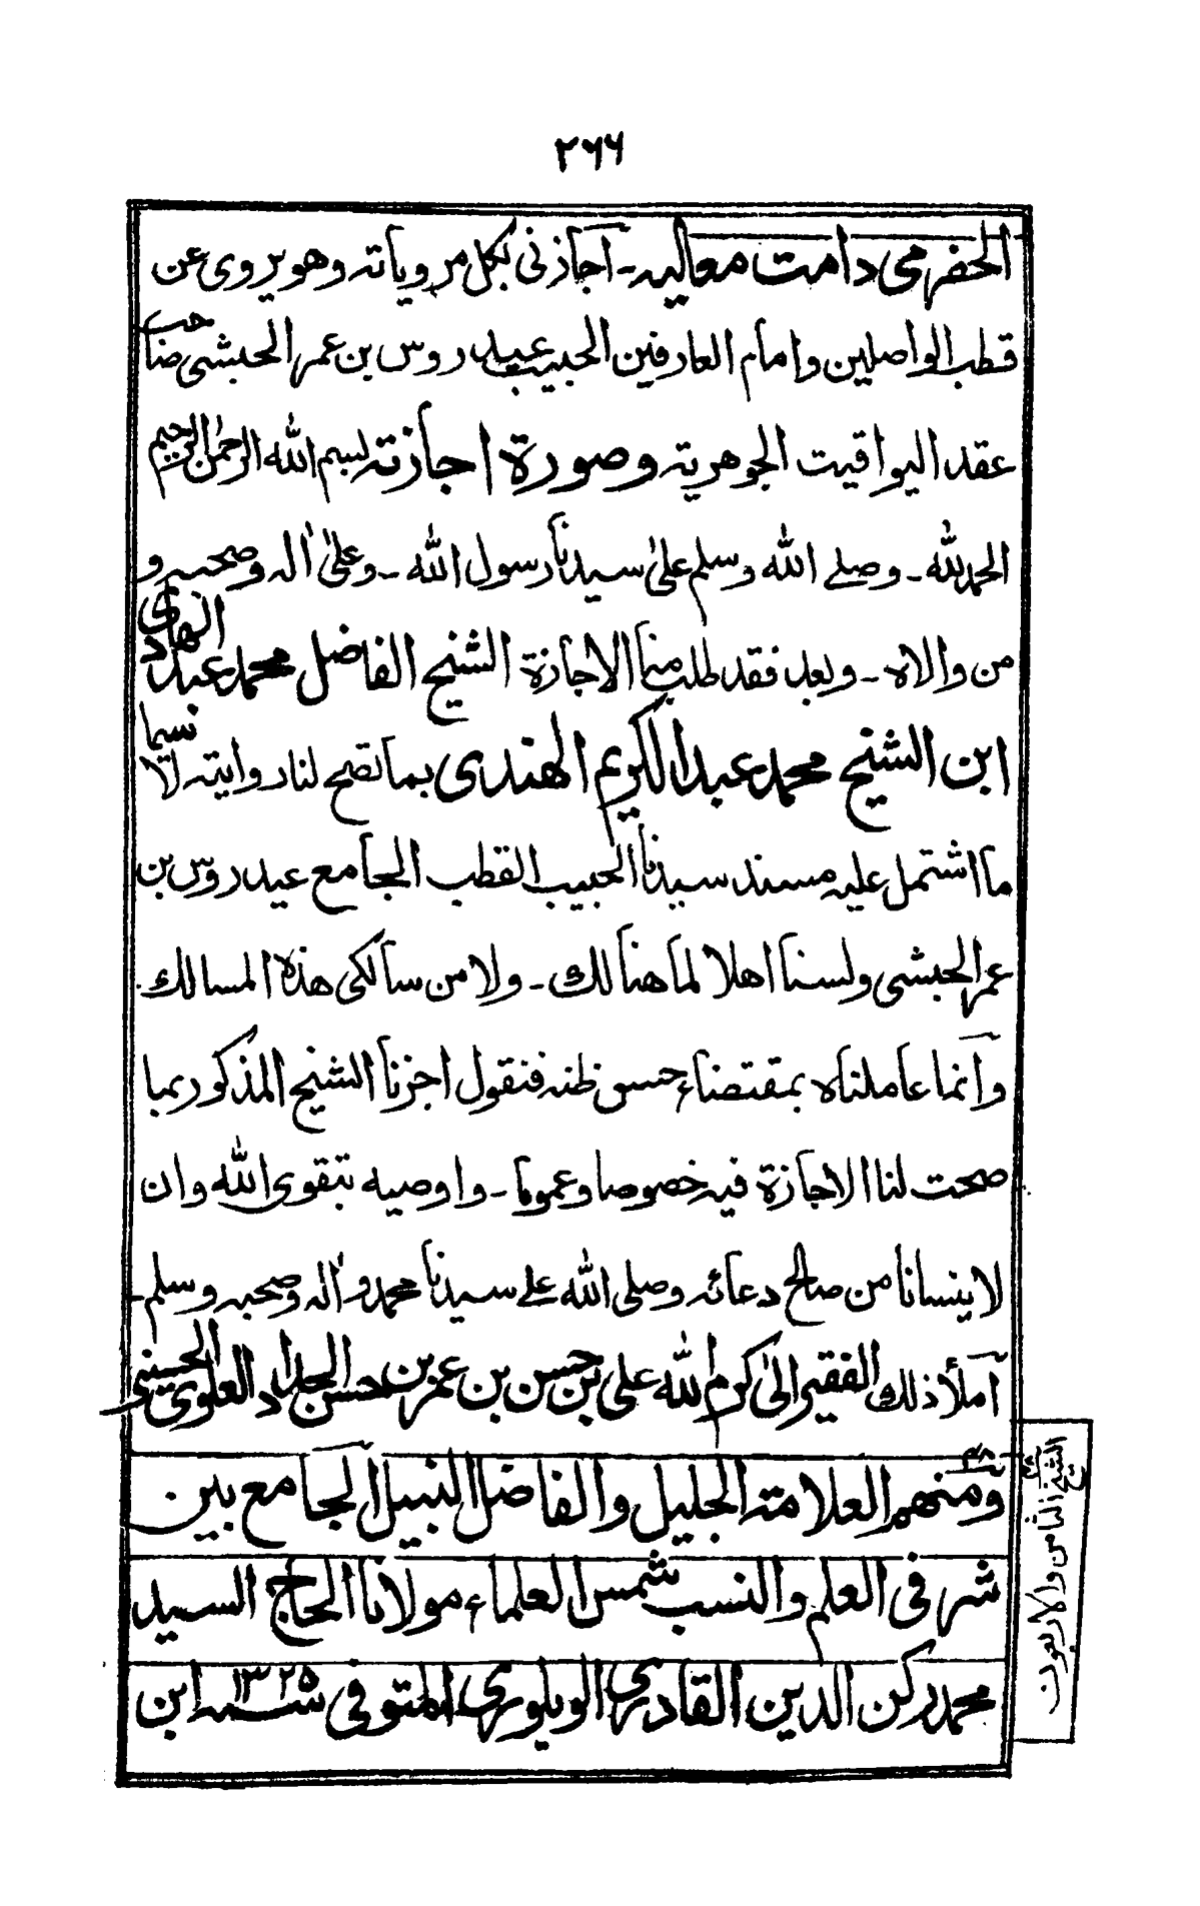 ٢٦٦
الحضرمى دامت معاليه ـ اجازنى بكل مروياته وهو يروى عن
قطب الواصلين وامام العارفين الحبيب عيدروس بن عمر الحبشى صاحب
عقد اليواقيت الجوهرية وصورة اجازته بسم الله الرحمن الرحيم
الحمد لله ـ وصلے الله وسلم علىٰ سيدنا رسول الله ـ وعلىٰ اٰله وصحبه و
من والاه ـ وبعد فقد طلب منا الاجازة الشيخ الفاضل محمد عبد الهادى
ابن الشيخ محمد عبد الكريم الهندى بما تصح لنا روايته لا سيما
ما اشتمل عليه مسند سيدنا الحبيب القطب الجامع عيدروس بن
عمر الحبشى ولسنا اهلا لما هنالك ـ ولا من سالكى هذه المسالك
وانما عاملناه بمقتضاء حسن ظنه فنقول اجزنا الشيخ المذكور بما
صحت لنا الاجازة فيه خصوصا وعموما ـ واوصيه بتقوى الله وان
لا ينسانا من صالح دعائه وصلى الله علے سيدنا محمد واٰله وصحبه وسلم ـ
آملأ ذلك الفقير الىٰ كرم الله على بن حسن بن عمر بن حسن الحداد العلوى الحسينى
٤٨ ومنهم العلامة الجليل والفاضل النبيل الجامع بين
شرفى العلم والنسب شمس العلماء مولانا الحاج السيد
محمد ركن الدين القادرى الويلورى المتوفى سنه ١٣٢٥ ابن
الشيخ الثامن والاربعون